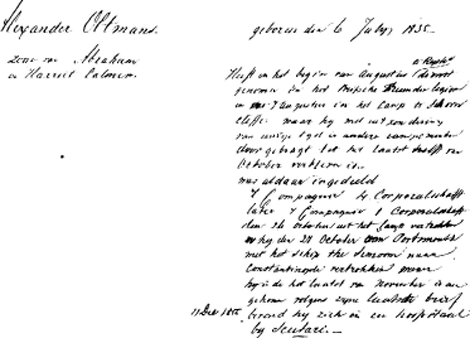 Alexander Oltmans.
geboren den 6 July 1835.
zoon van Abraham
en Harriet Palmer.
Heeft in het begin van Augustus dienst
genomen in het Britsche Vreemden legioen
en was 7 Augustus in het Camp te Shorn
cliffe. waar hij met uitzondering
van eenige tyd in andere campementen
doorgebragt tot het laatst van
October verbleven is.
was aldaar ingedeeld
7 Compagnie 4 Corporaalschap
later 7 Compagnie 1 Corporaalschap
den 26 October uit het Camp vertrokken
en hy den 27 October van Portsmouth
met het schip the Simoon naar
Constantinople vertrokken waar
hy in het laatst van November is aan
gekomen volgens zyne laatste brief
11 Dec 1855.
bevond hy zich in een hospitaal
by Scutari.